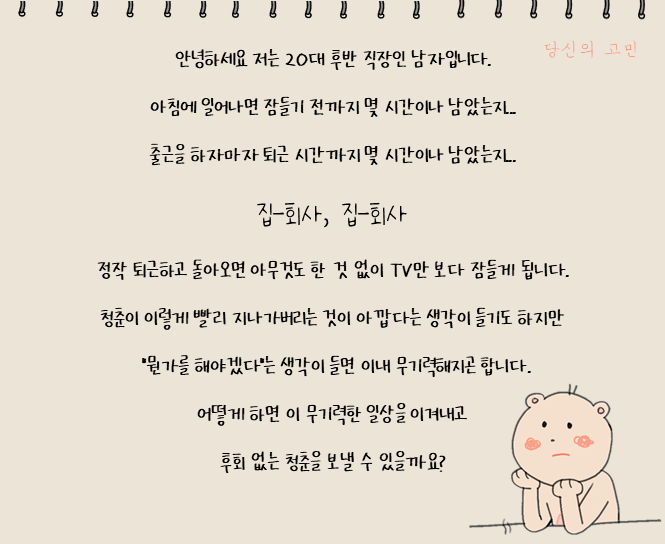 당신의 고민
안녕하세요 저는 20대 후반 직장인 남자입니다.
아침에 일어나면 잠들기 전까지 몇 시간이나 남았는지...
출근을 하자마자 퇴근 시간까지 몇 시간이나 남았는지...
집-회사, 집-회사
정작 퇴근하고 돌아오면 아무것도 한 것 없이 TV만 보다 잠들게 됩니다.
청춘이 이렇게 빨리 지나가버리는 것이 아깝다는 생각이 들기도 하지만
"뭔가를 해야겠다"는 생각이 들면 이내 무기력해지곤 합니다.
어떻게 하면 이 무기력한 일상을 이겨내고
후회 없는 청춘을 보낼 수 있을까요?